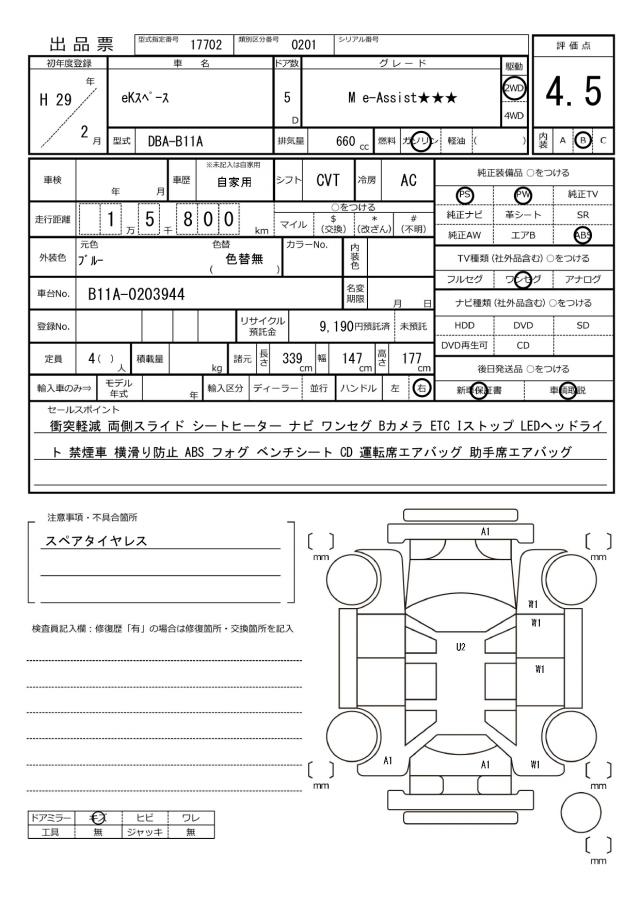 出品票 型式指定番号 17702 類別区分番号 0201 シリアル番号
評価点
初年度登録 車名 ドア数 グレード 駆動
H 29 年 eKスペース 5 D M e-Assist★★★ 2WD 4WD
4.5
2 月 型式 DBA-B11A 排気量 660 cc 燃料 ガソリン 軽油 ( ) 内装 A B C
車検 年 月 車歴 ※未記入は自家用 自家用 シフト CVT 冷房 AC
純正装備品 ○をつける
PS PW 純正TV
走行距離 1 万 5 千 8 0 0 km ○をつける
マイル $ (交換) * (改ざん) # (不明)
純正ナビ 革シート SR
純正AW エアB ABS
外装色 元色 ブルー 色替 ( 色替無 ) カラーNo. 内装色
TV種類 (社外品含む) ○をつける
フルセグ ワンセグ アナログ
車台No. B11A-0203944 名変期限 月 日
ナビ種類 (社外品含む) ○をつける
登録No. リサイクル預託金 9,190円預託済 未預託
HDD DVD SD
DVD再生可 CD
定員 4( ) 人 積載量 kg 諸元 長さ 339 cm 幅 147 cm 高さ 177 cm
後日発送品 ○をつける
輸入車のみ⇒ モデル年式 年 輸入区分 ディーラー 並行 ハンドル 左 右
新車保証書 車輌取説
セールスポイント
衝突軽減 両側スライド シートヒーター ナビ ワンセグ Bカメラ ETC Iストップ LEDヘッドライ
ト 禁煙車 横滑り防止 ABS フォグ ベンチシート CD 運転席エアバッグ 助手席エアバッグ
注意事項・不具合箇所
スペアタイヤレス
検査員記入欄：修復歴「有」の場合は修復箇所・交換箇所を記入
A1
mm
mm
W1
W1
U2
W1
A1
A1
W1
mm
mm
mm
ドアミラー キズ ヒビ ワレ
工具 無 ジャッキ 無